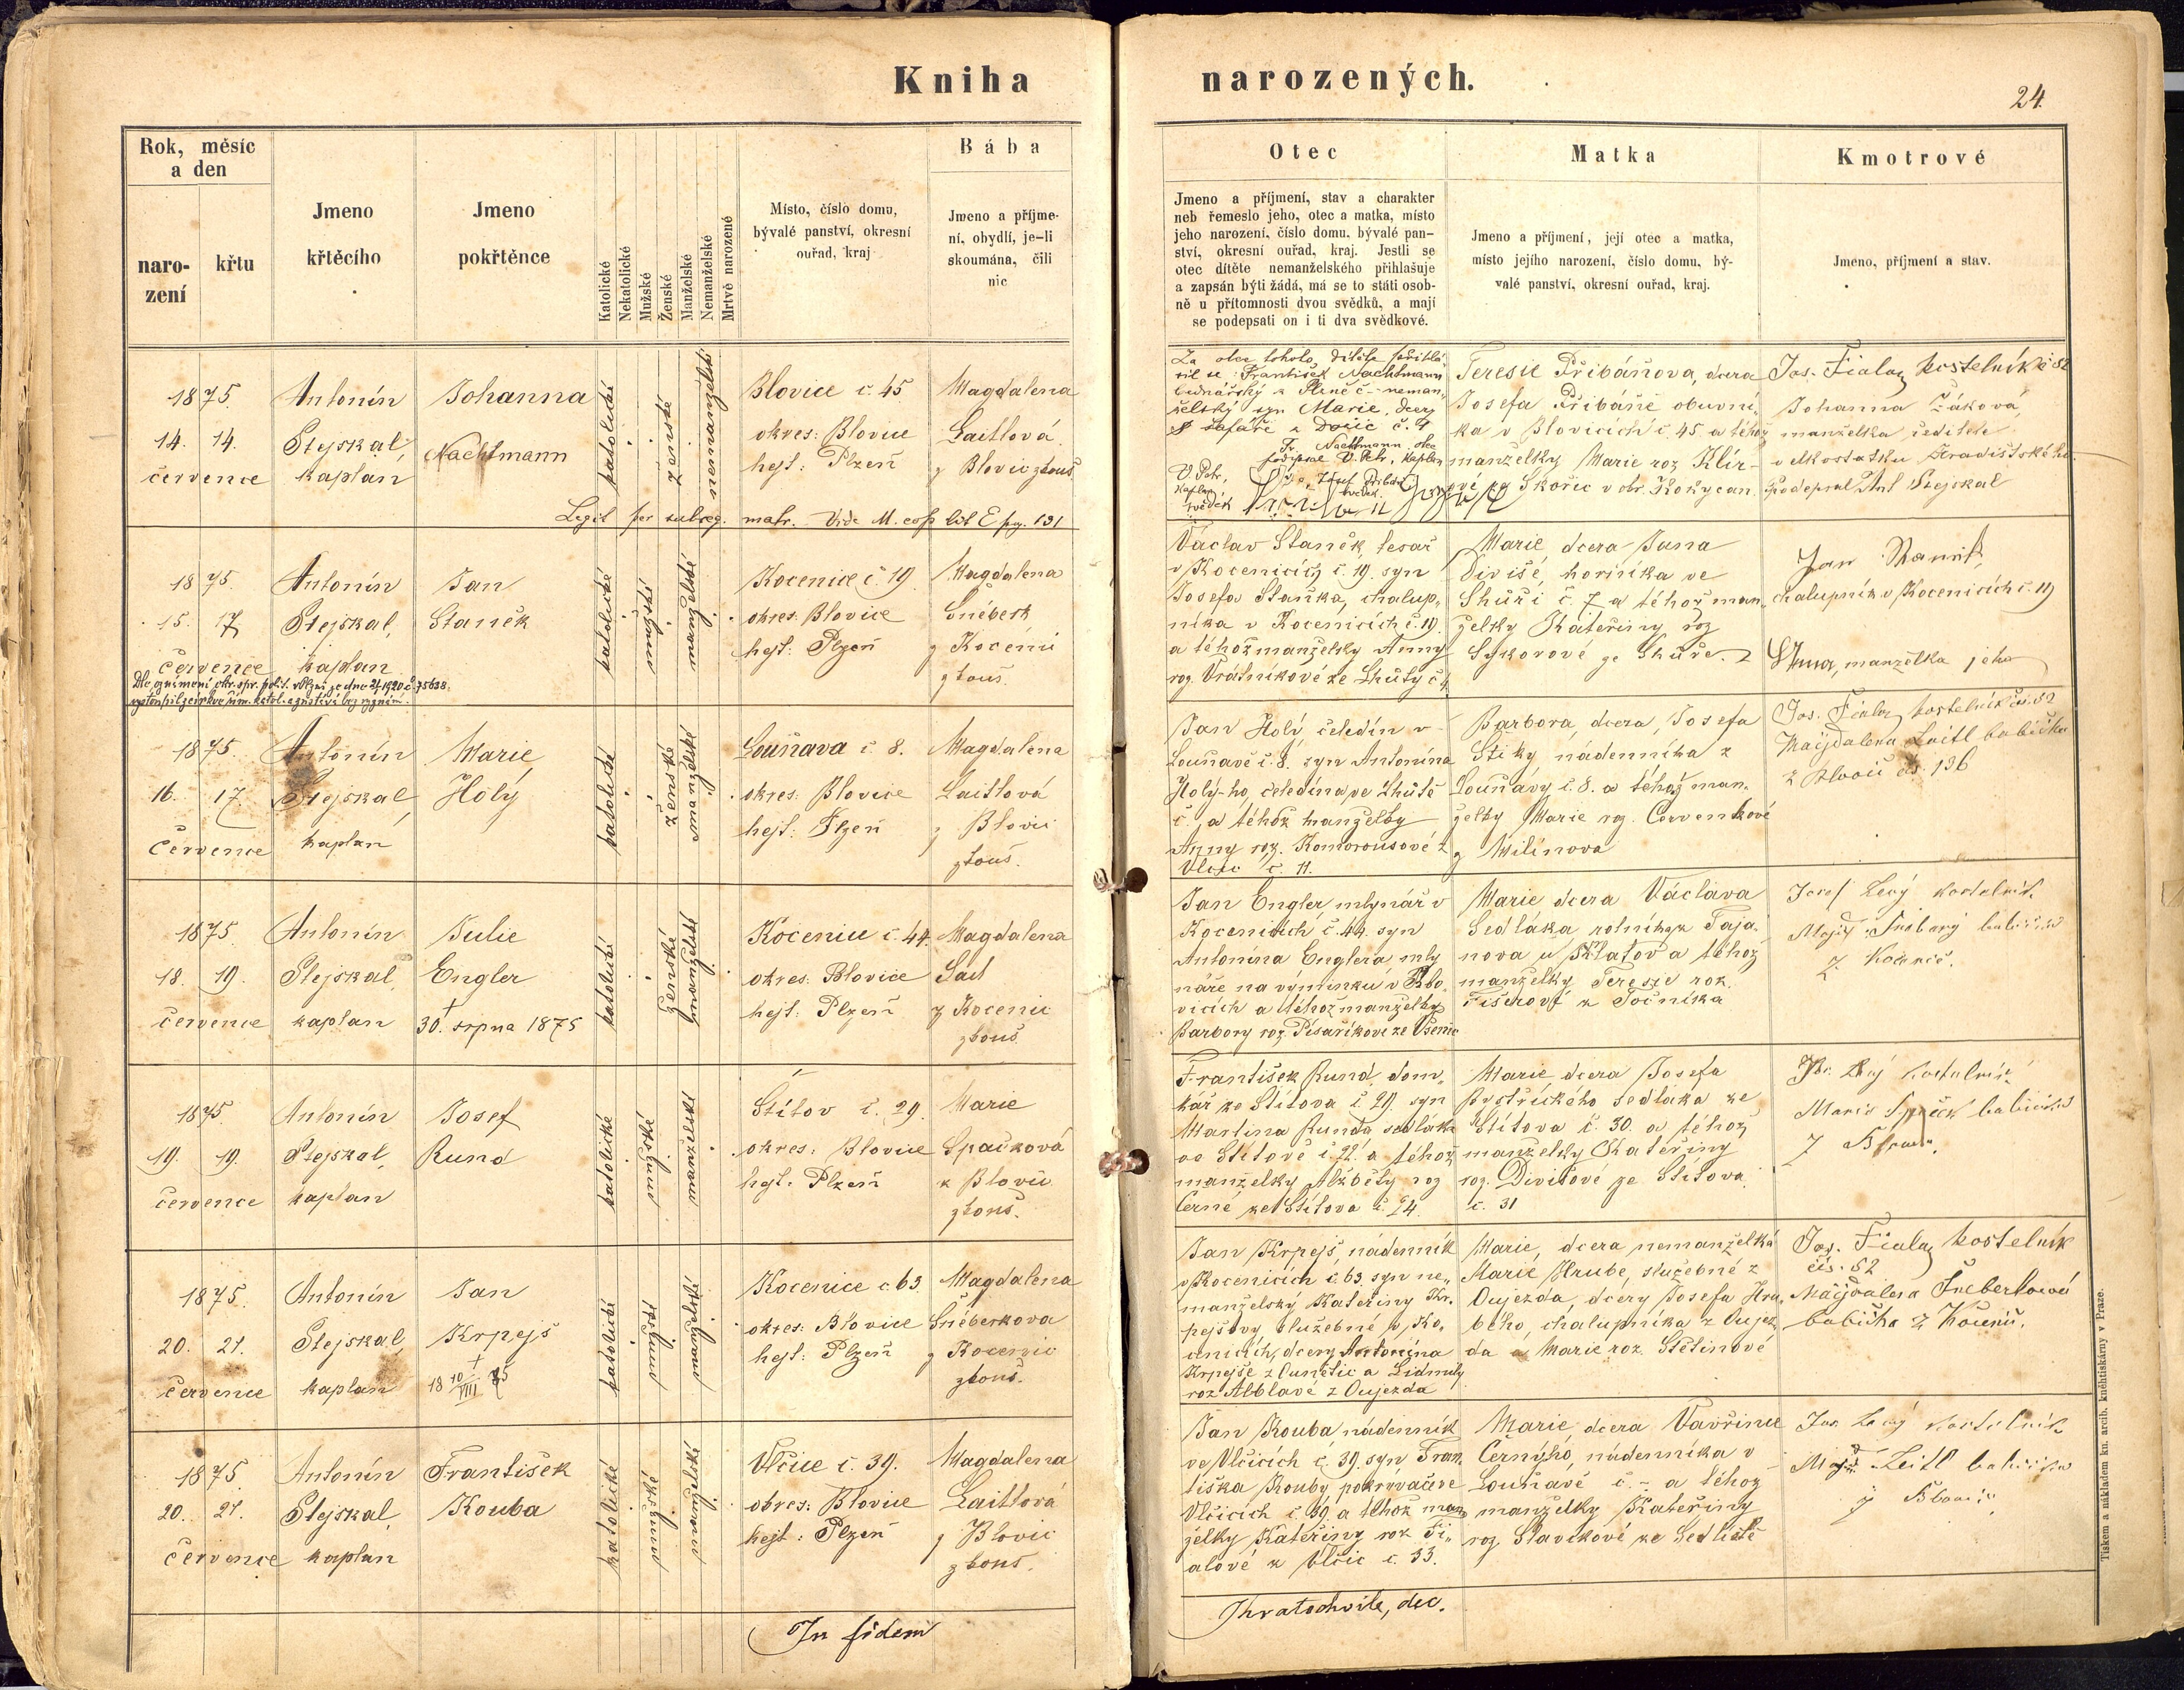 Kniha
narozených.
24.
Rok, měsíc
a den
naro-
zení
křtu
Jmeno
křtěcího
Jmeno
pokřtěnce
Katolické
Nekatolické
Mužské
Ženské
Manželské
Nemanželské
Mrtvě narozené
Místo, číslo domu,
bývalé panství, okresní
ouřad, kraj
Bába
Jmeno a příjme-
ní, obydlí, je-li
skoumána, čili
nic
Otec
Jmeno a příjmení, stav a charakter
neb řemeslo jeho, otec a matka, místo
jeho narození, číslo domu, bývalé pan-
ství, okresní ouřad, kraj. Jestli se
otec dítěte nemanželského přihlašuje
a zapsán býti žádá, má se to státi osob-
ně u přítomnosti dvou svědků, a mají
se podepsati on i ti dva svědkové.
Matka
Jmeno a příjmení, její otec a matka,
místo jejího narození, číslo domu, bý-
valé panství, okresní ouřad, kraj.
Kmotrové
Jmeno, příjmení a stav.
1875.
14. 14.
července
Antonín
Stejskal,
kaplan
Johanna
Nachtmann
katolické
ženské
nemanželské
Blovice č. 45
okres: Blovice
hejt: Plzeň
Magdalena
Laitlová
z Blovic zkouš
Za otce tohoto dítěte přihlá
sil se František Nachtmann
bednářský z Plzně č – neman
želský syn Marie, dcery
šafáře z Došic č. 4
Fr. Nachtmann otec
podepsal V. Petr, kaplan
V. Petr,
kaplan
svědek
Teresie Přibáňova, dcera
Josefa Přibáně obuvní
ka v Blovicích č. 45 a téhož
manželky Marie roz Klír-
ové ze Skořic v okr. Rokycan.
Jos. Fiala kostelník č 52
Johanna Žáková
manželka ředitele
velkostatku Hradištského
podepsal Ant Stejskal
Legit per subseq. matr. Vide M. cop lit E pg. 131
1875
15. 17
července
Antonín
Stejskal,
kaplan
Jan
Staněk
katolické
mužské
manželské
Kocenice č. 19
okres: Blovice
hejt: Plzeň
Magdalena
Šnéberk
z Kocenic
zkouš.
Václav Staněk, tesař
v Kocenicích č. 19. syn
Josefa Staňka, chalup-
níka v Kocenicích č. 19
a téhož manželky Anny
roz. Vrátníkové ze Lhůty č 4
Marie, dcera Jana
Diviše, horníka ve
Lhůři č. 7 a téhož man
želky Kateřiny roz
Sykorové ze Lhůře.
Jan
chalupník v Kocenicích č. 19
Anna, manželka jeho
Dle oznámení okr. spr. polit. v Plzni ze dne 21/7 1920 č. 75638
vystoupil z církve řím. katol. a zůstává bez vyznání.
1875.
16. 17.
července
Antonín
Stejskal,
kaplan
Marie
Holý
katolické
ženské
manželské
Louňava č. 8.
okres: Blovice
hejt: Plzeň
Magdalena
Laitlová
z Blovic
zkouš.
Jan Holý, čeledín v
Louňavě č. 8. syn Antonína
Holý-ho, čeledína ve Lhůtě
č. , a téhož manželky
Anny roz. Komorousové z
Vlčic č. 11.
Barbora, dcera, Josefa
Štiky nádenníka z
Louňavy č. 8. a téhož man-
želky Marie roz. Červenkové
z Milínova
Jos. Fiala, kostelník čís. 52
Magdalena Laitl babička
z Blovic čís. 136
1875.
18. 19.
července
Antonín
Stejskal,
kaplan
Julie
Engler
† 30. srpna 1875
katolické
ženské
manželské
Kocenice č. 44.
okres: Blovice
hejt: Plzeň
Magdalena
z Kocenic
zkouš.
Jan Engler mlynář v
Kocenicích č. 44. syn
Antonína Englera, mly
náře na výminku v Blo-
vicích a téhož manželky
Barbory roz. Písaříkove ze Všenic
Marie dcera Václava
Sedláka rolníka z Taja-
nova u Klatov a téhož
manželky Teresie roz.
Fišerové z Točníka
Josef Levý kostelník
Magd. babička
z Kocenic.
1875.
19. 19.
července
Antonín
Stejskal,
kaplan
Josef
Rund
katolické
mužské
manželské
Štítov č. 29.
okres: Blovice
hejt. Plzeň
Marie
Spačková
z Blovic
zkouš.
František Rund, dom-
kář ze Štítova č. 29. syn
Martina Runda sedláka
ve Štítově č. 22. a téhož
manželky Alžběty roz
Černé ze Štítova č. 24.
Marie dcera Josefa
Bystřického sedláka ze
Štítova č. 30. a téhož
manželky Kateřiny
roz. Divišové ze Štítova
č. 31
Jos. Levý kostelník
Marie Špaček babička
z Blovic.
1875.
20. 21.
července
Antonín
Stejskal,
kaplan
Jan
Krpejš
† 18 10/VIII 75
katolické
mužské
manželské
Kocenice č. 63
okres: Blovice
hejt: Plzeň
Magdalena
Šnéberkova
z Kocenic
zkouš.
Jan Krpejš, nádenník
v Kocenicích č. 63. syn ne-
manželský Kateřiny Kr-
pejšovy služebné v Ko-
cenicích, dcery Antonína
Krpejše z Čunětic a Lidmily
roz Alblavé z Oujezda
Marie, dcera nemanželká
Marie Hrubé, služebné z
Oujezda, dcery Josefa Hru
beho, chalupníka z Oujez
da a Marie roz. Štětinové
Jos. Fiala kostelník
čís. 52
Magdalena Šneberkova
babička z Kocenic.
1875.
20. 21.
července
Antonín
Stejskal,
kaplan
František
Kouba
katolické
mužské
manželské
Vlčice č. 39.
okres: Blovice
hejt: Plzeň
Magdalena
Laitlová
z Blovic
zkouš.
Jan Kouba nádenník
ve Vlčicích č. 39. syn Fran
tiška Kouby pokrývače ve
Vlčicích č. 39. a téhož man
želky Kateřiny roz Fi-
alové z Vlčic č. 33.
Marie, dcera Vavřince
Černýho, nádenníka v
Louňavě č. – a téhož
manželky Kateřiny
roz. Slavíkové ze Sedliště
Jos Levý kostelník
Magd. Leitl babička
z Blovic
In fidem
Kratochvíle, dec.
Tiskem a nákladem kn. arcib. knihtiskárny v Praze.